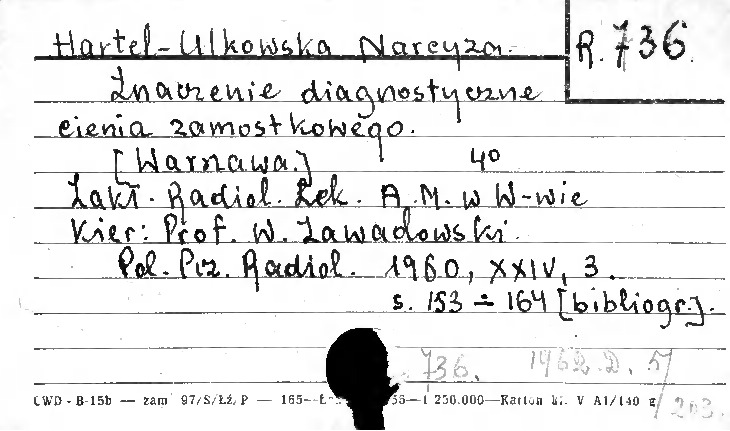 Hartel-Ulkowska Narcyza.
R. 736.
Znaczenie diagnostyczne
cienia zamostkowego.
[Warszawa.] 40
Zakł. Radiol. Lek. A.M. w W-wie
Kier: Prof. W. Zawadowski.
Pol. Prz. Radiol. 1960, XXIV, 3.
s. 153 - 164 [bibliogr.].
736. 1962.D. 5/
203.
CWD - B-15b — zam 97/S/Łź/P — 165- 250.000—Karton kl. V A1/140 g